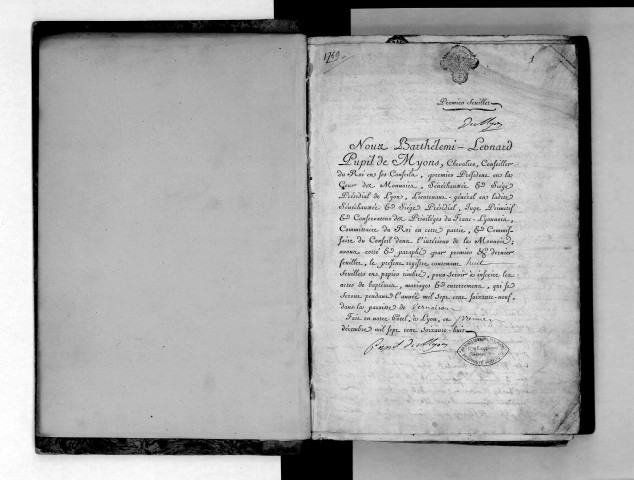 1769.
1
Premier feuillet
De Myons
Nous Barthélemi-Leonard
Pupil de Myons, Chevalier, Conseiller
du Roi en ses Conseils, premier Président en la
Cour des Monnoies, Sénéchaussée & Siége
Présidial de Lyon, Lieutenant-général en ladite
Sénéchaussée & Siége Présidial, Juge Primitif
& Conservateur des Priviléges du Franc-Lyonnois,
Commissaire du Roi en cette partie, & Commis-
saire du Conseil dans l'intérieur de la Monnoie;
avons coté & paraphé par premier & dernier
feuillet, le présent registre contenant huit
feuillets en papier timbré, pour servir à inscrire les
actes de baptêmes, mariages & enterremens, qui se
feront pendant l'année mil sept cent soixante-neuf,
dans la paroisse de Vernaison
Fait en notre hôtel, à Lyon, ce premier
décembre mil sept cent soixante-huit
Pupil de Myons